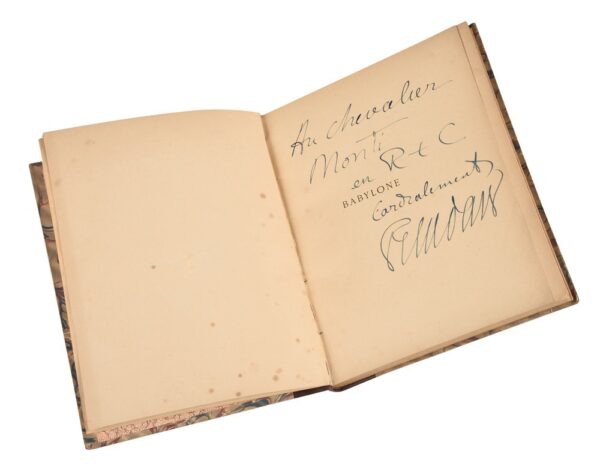 Au chevalier
Monti
en R + C
BABYLONE
Cordialement
Peladan